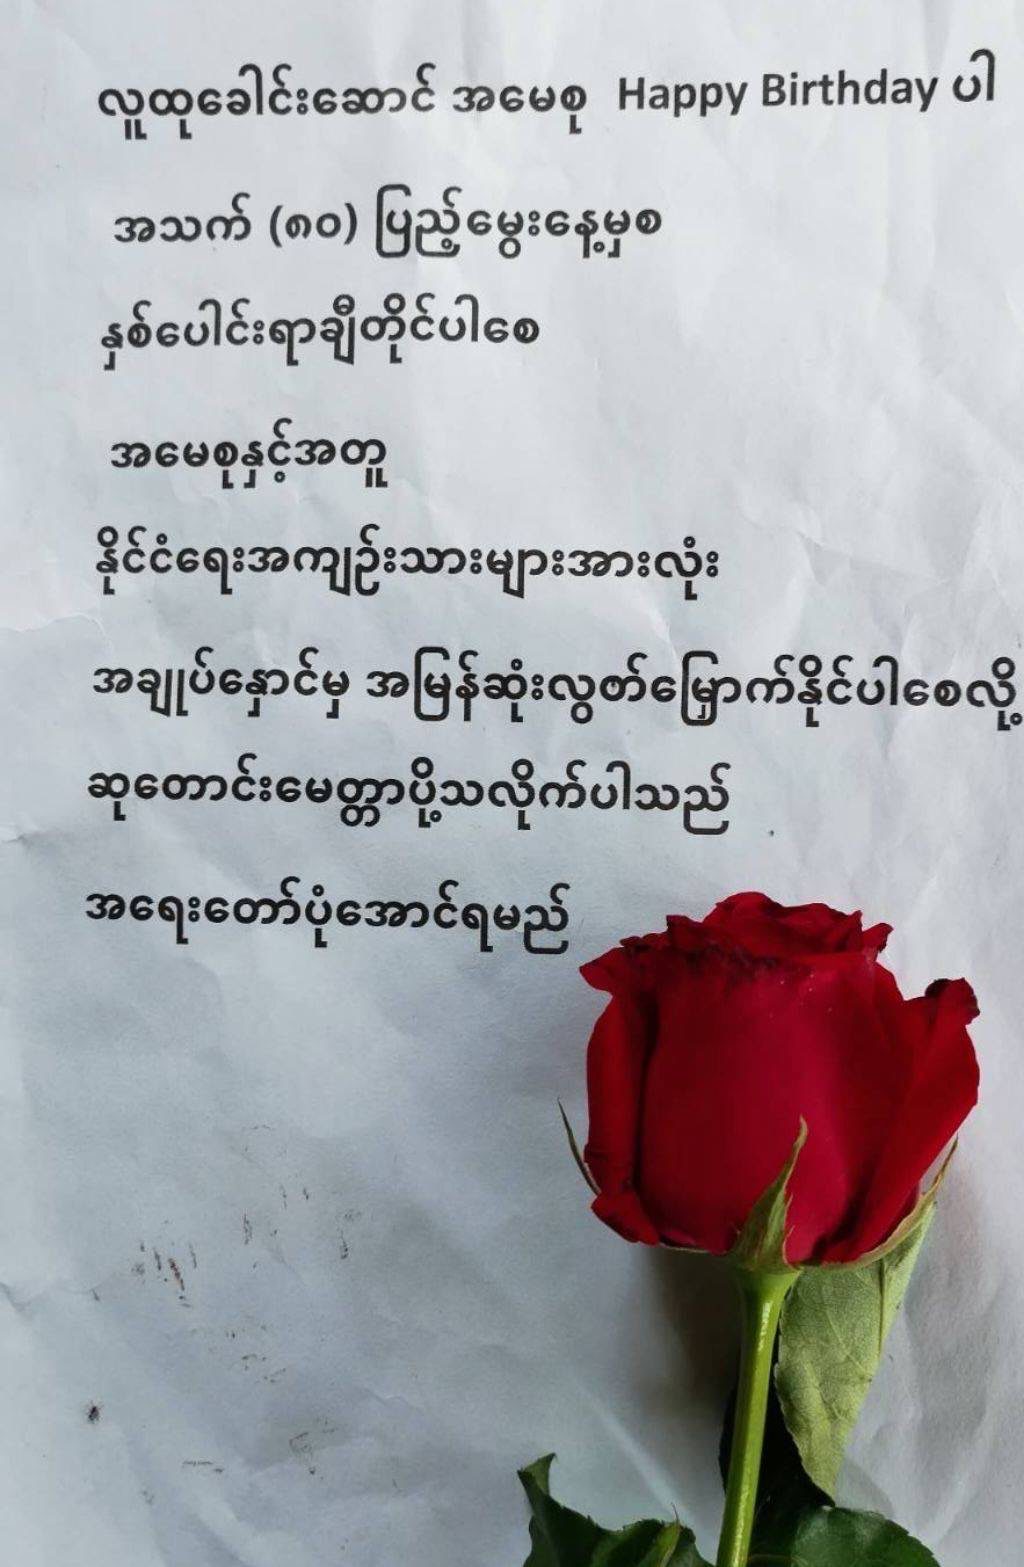 လူထုခေါင်းဆောင် အမေစု Happy Birthday ပါ
အသက် (၈၀) ပြည့်မွေးနေ့မှစ
နှစ်ပေါင်းရာချီတိုင်ပါစေ
အမေစုနှင့်အတူ
နိုင်ငံရေးအကျဉ်းသားများအားလုံး
အချုပ်နှောင်မှ အမြန်ဆုံးလွတ်မြှောက်နိုင်ပါစေလို့
ဆုတောင်းမေတ္တာပို့သလိုက်ပါသည်
အရေးတော်ပုံအောင်ရမည်